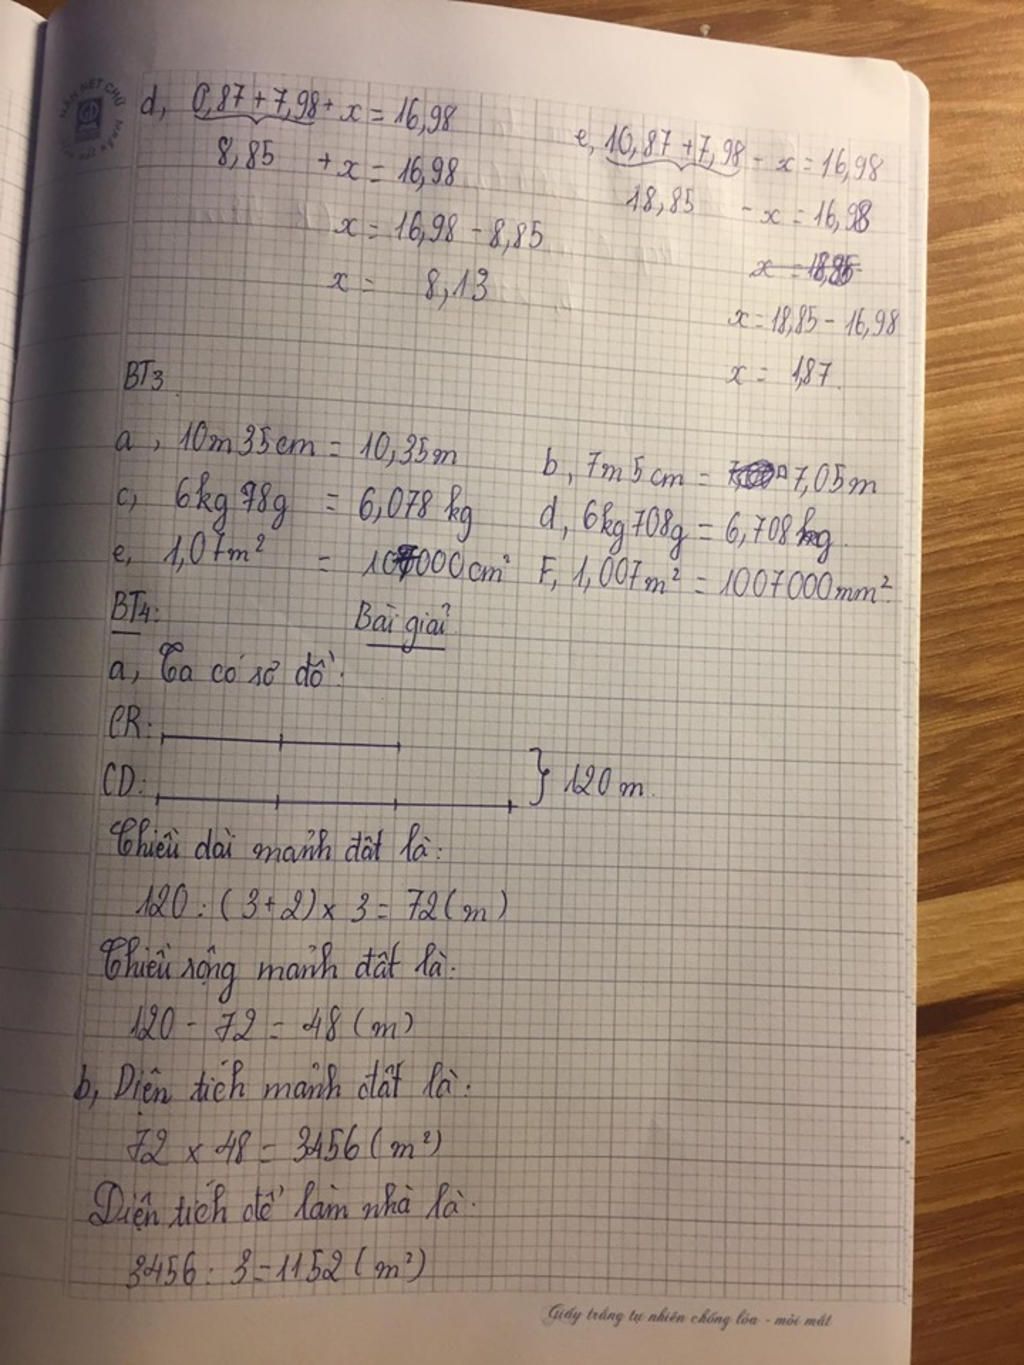 d, 0,87 + 7,98 + x = 16,98
8,85 + x = 16,98
x = 16,98 - 8,85
x = 8,13
e, 10,87 + 7,98 - x = 16,98
18,85 - x = 16,98
x = 18,85
x = 18,85 - 16,98
x = 1,87.
BT3
a, 10m 35cm = 10,35m
b, 7m 5cm = 7,05m
c, 6kg 78g = 6,078 kg
d, 6kg 708g = 6,708 kg.
e, 1,07m² = 107000cm²
F, 1,007m² = 1007000mm²
BT4:
Bài giải
a, Ta có sơ đồ:
CR:
CD:
120 m.
Chiều dài mảnh đất là:
120 : (3+2) x 3 = 72 (m)
Chiều rộng mảnh đất là:
120 - 72 = 48 (m)
b, Diện tích mảnh đất là:
72 x 48 = 3456 (m²)
Diện tích để làm nhà là:
3456 : 3 = 1152 (m²)
Giấy trắng tự nhiên chống lóa - mỏi mắt